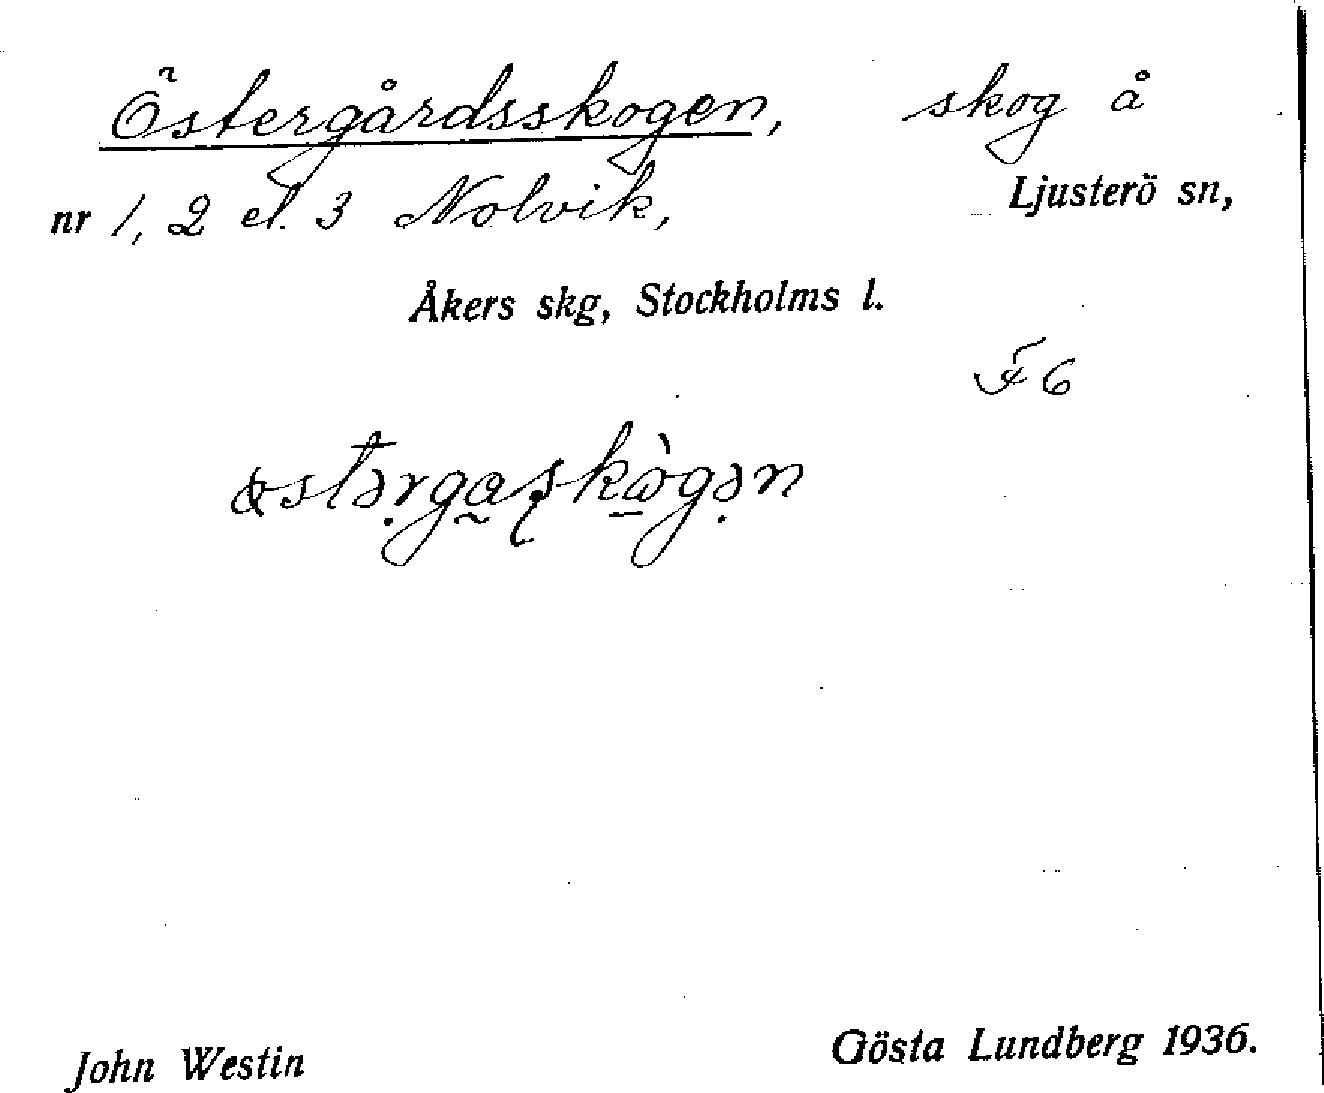 Östergårdsskogen, skog å
nr 1, 2 el. 3 Nolvik, Ljusterö sn,
Åkers skg, Stockholms l.
F 6
John Westin Gösta Lundberg 1936.